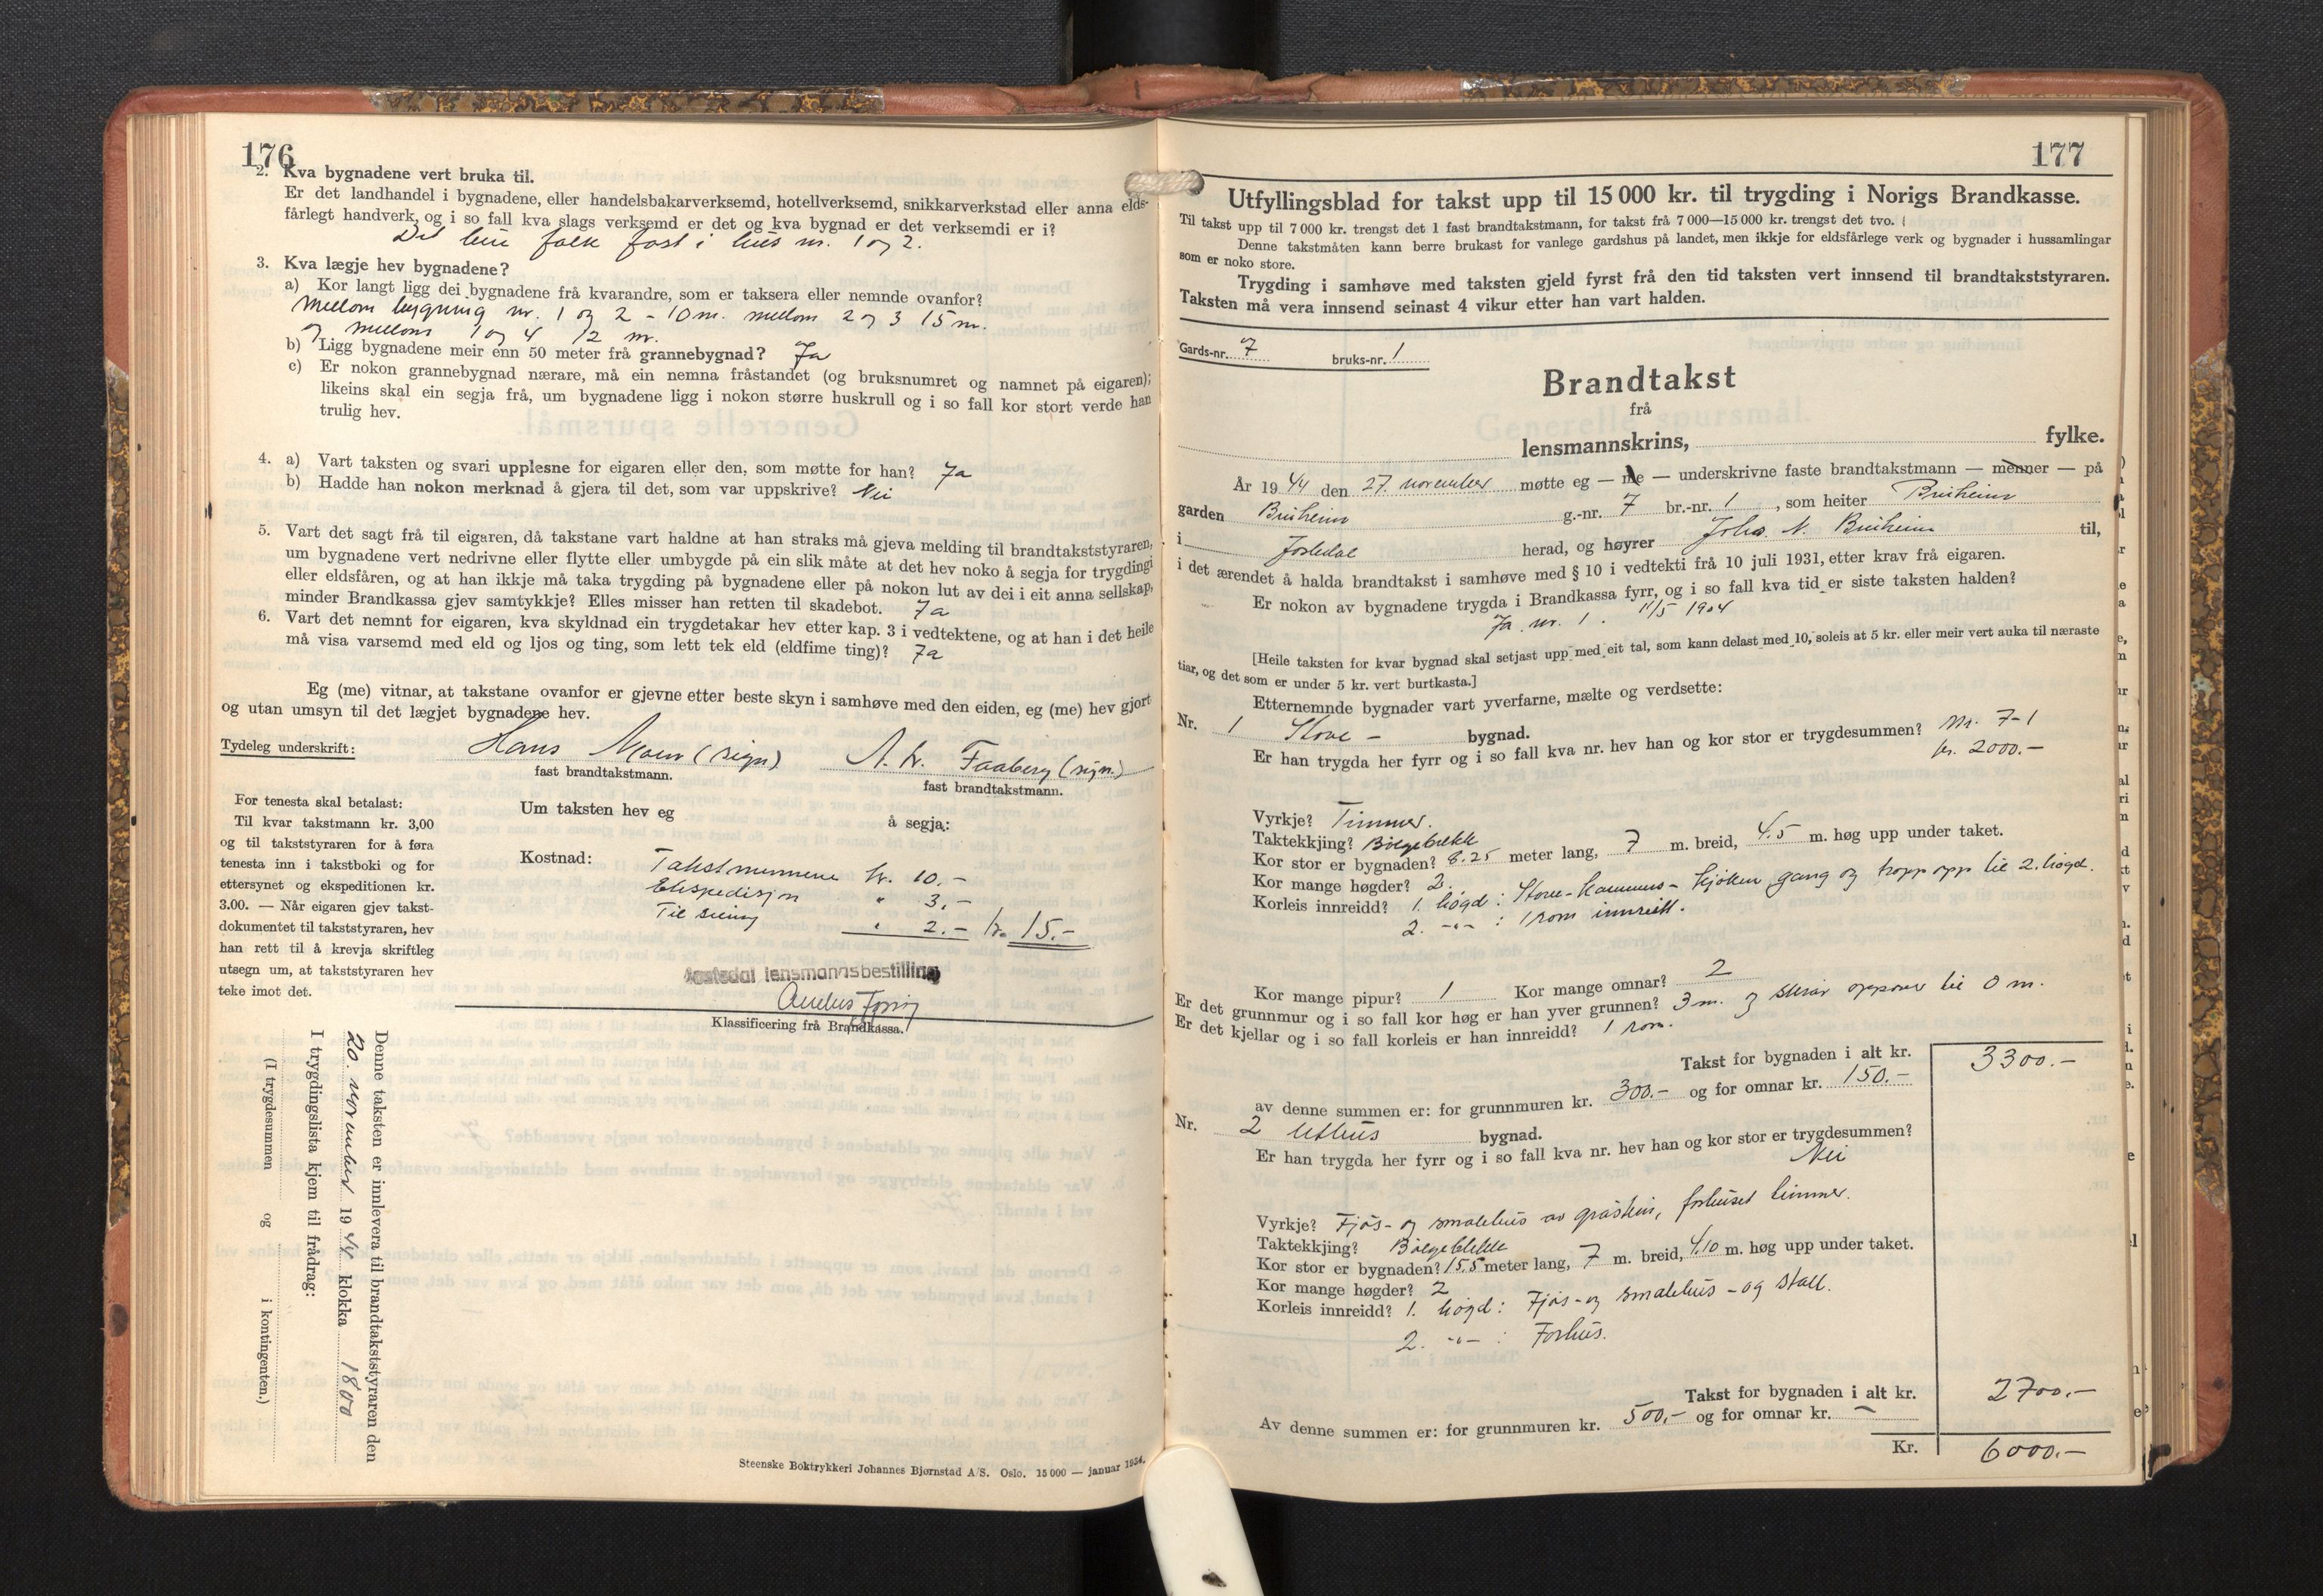 176
2. Kva bygnadene vert bruka til.
Er det landhandel i bygnadene, eller handelsbakarverksemd, hotellverksemd, snikkarverkstad eller anna elds-
fårlegt handverk, og i so fall kva slags verksemd er det og kva bygnad er det verksemdi er i?
Det bur folk fast i hus nr. 1 og 2.
3. Kva lægje hev bygnadene?
a) Kor langt ligg dei bygnadene frå kvarandre, som er taksera eller nemnde ovanfor?
Mellom bygning nr. 1 og 2 - 10 m. mellom 2 og 3 15 m.
og mellom 1 og 4 12 m.
b) Ligg bygnadene meir enn 50 meter frå grannebygnad? Ja
c) Er nokon grannebygnad nærare, må ein nemna fråstandet (og bruksnumret og namnet på eigaren);
likeins skal ein segja frå, um bygnadene ligg i nokon større huskrull og i so fall kor stort verde han
trulig hev.
4. a) Vart taksten og svari upplesne for eigaren eller den, som møtte for han? Ja
b) Hadde han nokon merknad å gjera til det, som var uppskrive? Nei
5. Vart det sagt frå til eigaren, då takstane vart haldne at han straks må gjeva melding til brandtakststyraren,
um bygnadene vert nedrivne eller flytte eller umbygde på ein slik måte at det hev noko å segja for trygdingi
eller eldsfåren, og at han ikkje må taka trygding på bygnadene eller på nokon lut av dei i eit anna sellskap,
minder Brandkassa gjev samtykkje? Elles misser han retten til skadebot. Ja
6. Vart det nemnt for eigaren, kva skyldnad ein trygdetakar hev etter kap. 3 i vedtektene, og at han i det heile
må visa varsemd med eld og ljos og ting, som lett tek eld (eldfime ting)? Ja
Eg (me) vitnar, at takstane ovanfor er gjevne etter beste skyn i samhøve med den eiden, eg (me) hev gjort
og utan umsyn til det lægjet bygnadene hev.
Tydeleg underskrift: Hans Moen (sign) Faaberg (sign.)
fast brandtakstmann. fast brandtakstmann.
For tenesta skal betalast:
Til kvar takstmann kr. 3,00
og til takststyraren for å føra
tenesta inn i takstboki og for
ettersynet og ekspeditionen kr.
3.00. — Når eigaren gjev takst-
dokumentet til takststyraren, hev
han rett til å krevja skriftleg
utsegn um, at takststyraren hev
teke imot det.
Um taksten hev eg å segja:
Kostnad: Takstmennene kr. 10.-
Ekspedisjon " 3.-
" 2.- kr. 15.-
Jostedal lensmannsbestilling
Klassificering frå Brandkassa.
Denne taksten er innlevera til brandtakststyraren den
20. november 1944 klokka 1800
I trygdingslista kjem til frådrag:
(I trygdesummen og i kontingenten.)
Steenske Boktrykkeri Johannes Bjørnstad A/S. Oslo. 15 000 — januar 1934.
177
Utfyllingsblad for takst upp til 15 000 kr. til trygding i Norigs Brandkasse.
Til takst upp til 7 000 kr. trengst det 1 fast brandtakstmann, for takst frå 7 000—15 000 kr. trengst det tvo.
Denne takstmåten kann berre brukast for vanlege gardshus på landet, men ikkje for eldsfårlege verk og bygnader i hussamlingar
som er noko store.
Trygding i samhøve med taksten gjeld fyrst frå den tid taksten vert innsend til brandtakststyraren.
Taksten må vera innsend seinast 4 vikur etter han vart halden.
Gards-nr. 7 bruks-nr. 1
Brandtakst
frå
lensmannskrins, fylke.
År 1944 den 27. november møtte eg — me — underskrivne faste brandtakstmann — menner — på
garden Bruheim g.-nr. 7 br.-nr. 1, som heiter Bruheim
i Jostedal herad, og høyrer Johs. N. Bruheim til,
i det ærendet å halda brandtakst i samhøve med § 10 i vedtekti frå 10 juli 1931, etter krav frå eigaren.
Er nokon av bygnadene trygda i Brandkassa fyrr, og i so fall kva tid er siste taksten halden?
Ja nr. 1. 11/5 1904
[Heile taksten for kvar bygnad skal setjast upp med eit tal, som kann delast med 10, soleis at 5 kr. eller meir vert auka til næraste
tiar, og det som er under 5 kr. vert burtkasta.]
Etternemnde bygnader vart yverfarne, mælte og verdsette:
Nr. 1 Stove - bygnad.
Er han trygda her fyrr og i so fall kva nr. hev han og kor stor er trygdesummen? Nr. 7-1
kr. 2000.-
Vyrkje? Timmer.
Taktekkjing? Bølgeblekk
Kor stor er bygnaden? 8.25 meter lang, 7 m. breid, 4.5 m. høg upp under taket.
Kor mange høgder? 2.
Korleis innreidd? 1. høgd: Stove-kammers- kjøken gang og tropp opp til 2. høgd.
2. -"- : 1 rom innreidt.
Kor mange pipur? 1 Kor mange omnar? 2
Er det grunnmur og i so fall kor høg er han yver grunnen? 3 m. og skrår oppover til 0 m.
Er det kjellar og i so fall korleis er han innreidd? 1 rom.
Takst for bygnaden i alt kr. 3300.-
av denne summen er: for grunnmuren kr. 300.- og for omnar kr. 150.-
Nr. 2 Uthus bygnad.
Er han trygda her fyrr og i so fall kva nr. hev han og kor stor er trygdesummen?
Nei
Vyrkje? Fjøs- og smalehus av gråstein, forhuset timmer.
Taktekkjing? Bølgeblekk
Kor stor er bygnaden? 15.5 meter lang, 7 m. breid, 4.10 m. høg upp under taket.
Kor mange høgder? 2
Korleis innreidd? 1. høgd: Fjøs- og smalehus - og stall.
2. -"- : Forhus.
Takst for bygnaden i alt kr. 2700.-
Av denne summen er: for grunnmuren kr. 500.- og for omnar kr. -
Kr. 6000.-